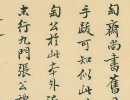 匋齋尚書舊
手跋可知似此
匋公於此本外
行九門張公